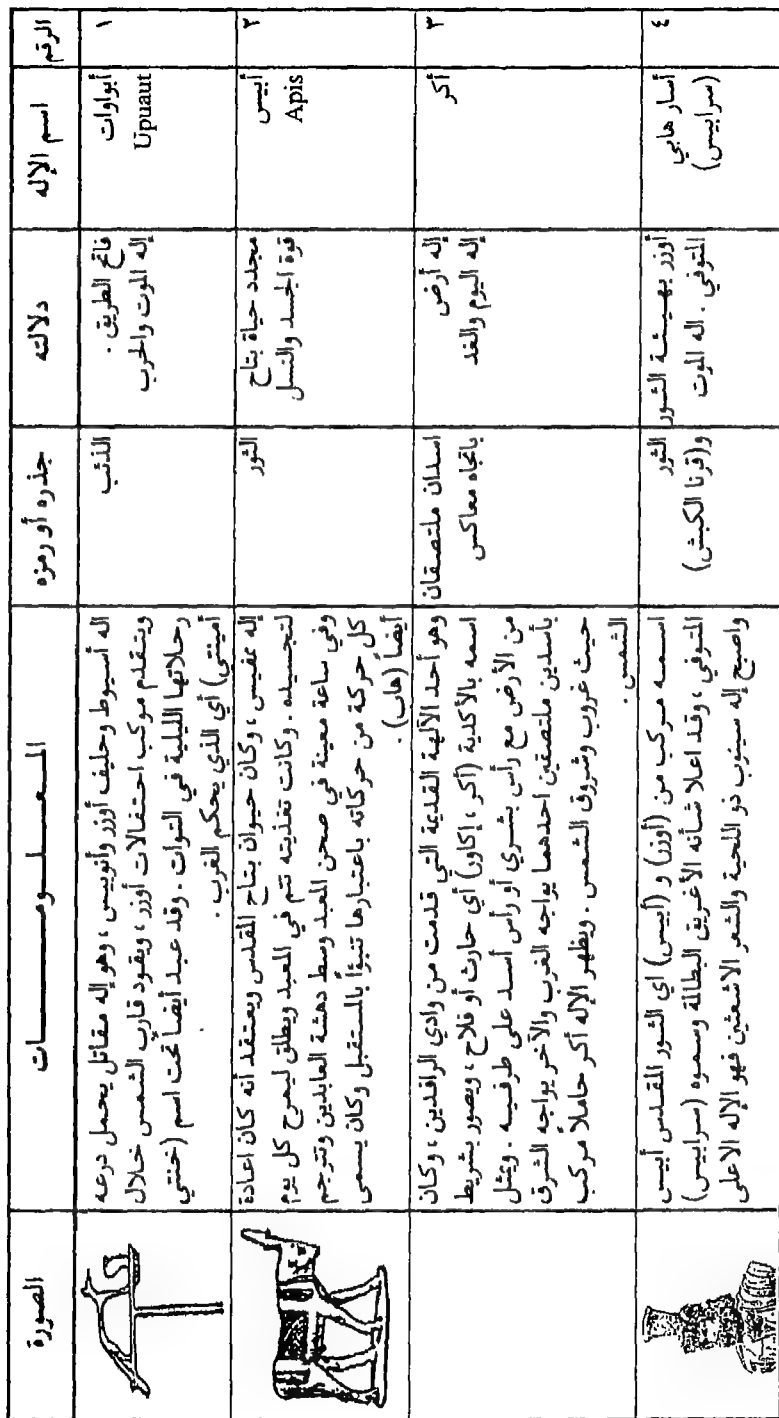 الرقم
اسم الإله
دلالته
جذره أو رمزه
المعلومات
الصورة
١
أبواوات
Upuaut
فاتح الطريق .
إله الموت والحرب
الذئب
اله أسيوط وحليف أوزر وأنوبيس ، وهو إله مقاتل يحمل درعه
ويتقدم موكب احتفالات أوزر ، ويقود قارب الشمس خلال
رحلاتها الليلية في التوات . وقد عبد أيضاً تحت اسم (خنتي
أمينتي) أي الذي يحكم الغرب .
٢
أبيس
Apis
مجدد حياة بتاح
قوة الجسد والنسل
الثور
إله ممفيس ، وكان حيوان بتاح المقدس ويعتقد أنه كان اعادة
لتجسيده . وكانت تغذيته تتم في المعبد ويطلق ليمرح كل يوم
وفي ساعة معينة في صحن المعبد وسط دهشة العابدين وتترجم
كل حركة من حركاته باعتبارها تنبؤاً بالمستقبل وكان يسمى
أيضاً (هاب) .
٣
أكر
إله أرض
إله اليوم والغد
اسدان ملتصقان
باتجاه معاكس
وهو أحد الآلهة القديمة التي قدمت من وادي الرافدين ، وكان
اسمه بالأكدية (أكر ، إكاور) أي حارث أو فلاح ، ويصور بشريط
من الأرض مع رأس بشري أو رأس أسد على طرفيه . ويمثل
بأسدين ملتصقين أحدهما يواجه الغرب والآخر يواجه الشرق
حيث غروب وشروق الشمس . ويظهر الإله أكر حاملاً مركب
الشمس .
٤
أسار هابي
(سرابيس)
أوزر بهيئة الثور
المتوفي . اله الموت
الثور
و(قرنا الكبش)
اسمه مركب من (أوزر) و (أبيس) اي الثور المقدس أبيس
المتوفي ، وقد اعلا شأنه الأغريق البطالة وسموه (سرابيس)
واصبح إله سينوب ذو اللحية والشعر الاشعثين فهو الإله الاعلى